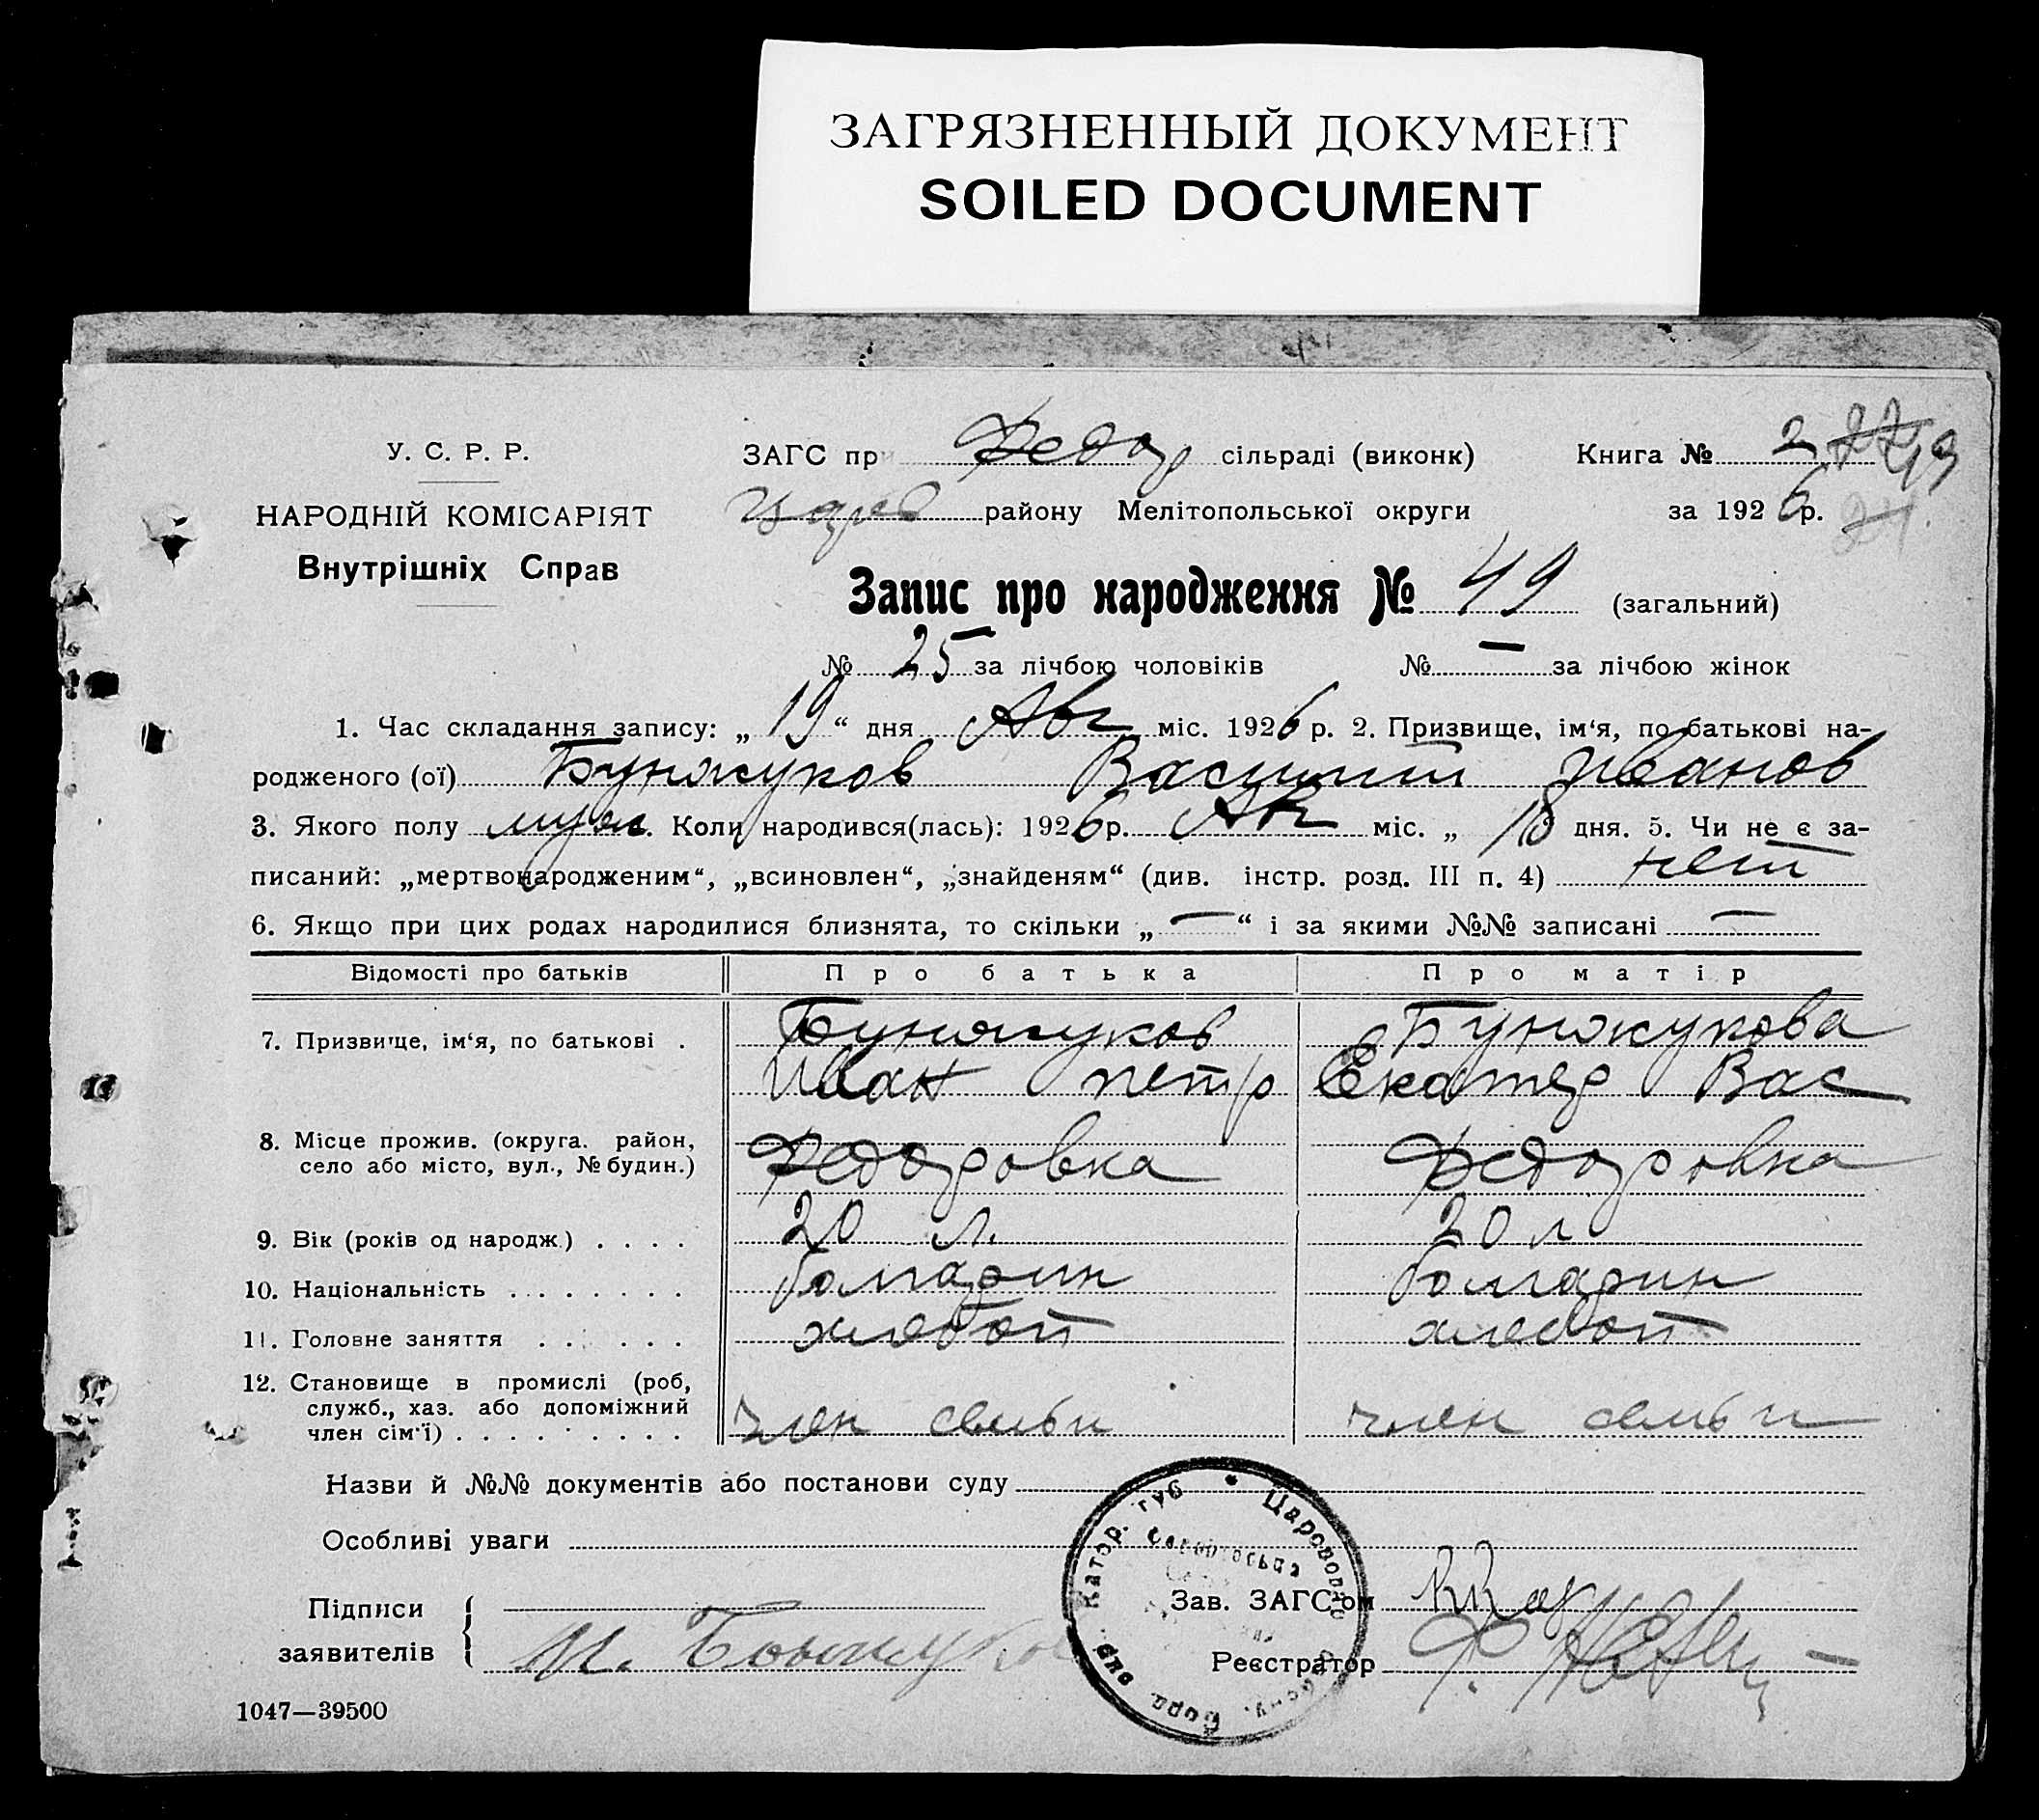 ЗАГРЯЗНЕННЫЙ ДОКУМЕНТ
SOILED DOCUMENT
У. С. Р. Р.
НАРОДНІЙ КОМІСАРІЯТ
Внутрішніх Справ
ЗАГС при Федор сільраді (виконк) Книга № 2
Царев району Мелітопольської округи за 1926 р.
Запис про народження № 49 (загальний)
№ 25 за лічбою чоловіків № — за лічбою жінок
1. Час складання запису: „19“ дня Авг міс. 1926 р. 2. Призвище, ім‘я, по батькові на-
родженого (ої) Бунжуков Василий Иванов
3. Якого полу муж. Коли народився(лась): 1926 р. Авг міс. „ 18 дня. 5. Чи не є за-
писаний: „мертвонародженим“, „всиновлен“, „знайденям“ (див. інстр. розд. III п. 4) нет
6. Якщо при цих родах народилися близнята, то скільки „—“ і за якими №№ записані —
Відомості про батьків Про батька Про матір
7. Призвище, ім‘я, по батькові . Бунжуков Бунжукова
Иван Петр Екатер Вас
8. Місце прожив. (округа. район,
село або місто, вул., № будин.) Федоровка Федоровка
9. Вік (років од народж.) . . . . 20 л. 20 л
10. Національність . . . . . . . . болгарин болгарин
11. Головне заняття . . . . . . хлебоп хлебоп
12. Становище в промислі (роб,
служб., хаз. або допоміжний
член сім‘ї) . . . . . . . . . член семьи член семьи
Назви й №№ документів або постанови суду
Особливі уваги
Підписи
заявителів
И.
Зав. ЗАГС‘ом
Реєстратор
Катор. губ
1047—39500